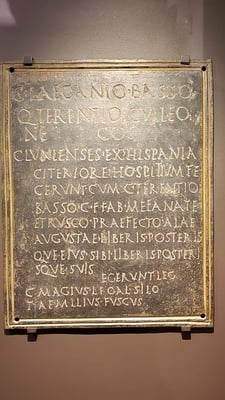 C·LAECANIO·BASSO
Q·TERENTIO·CVLLEO
NE COS
CLVNIENSES·EX·HISPANIA
CITERIORE·HOSPITIVM·FE
CERVNT·CVM·C·TERENTIO
BASSO·C·F·FAB·MEFANATE
ETRVSCO·PRAEFECTO·ALAE
AVGVSTAE·LIBERIS·POSTERIS
QVE·EIVS·SIBI·LIBERIS·POSTERI
SQVE·SVIS
EGERVNT·LEG
C·MAGIVS·L·F·GAL·SILO
T·AEMILIVS·FVSCVS